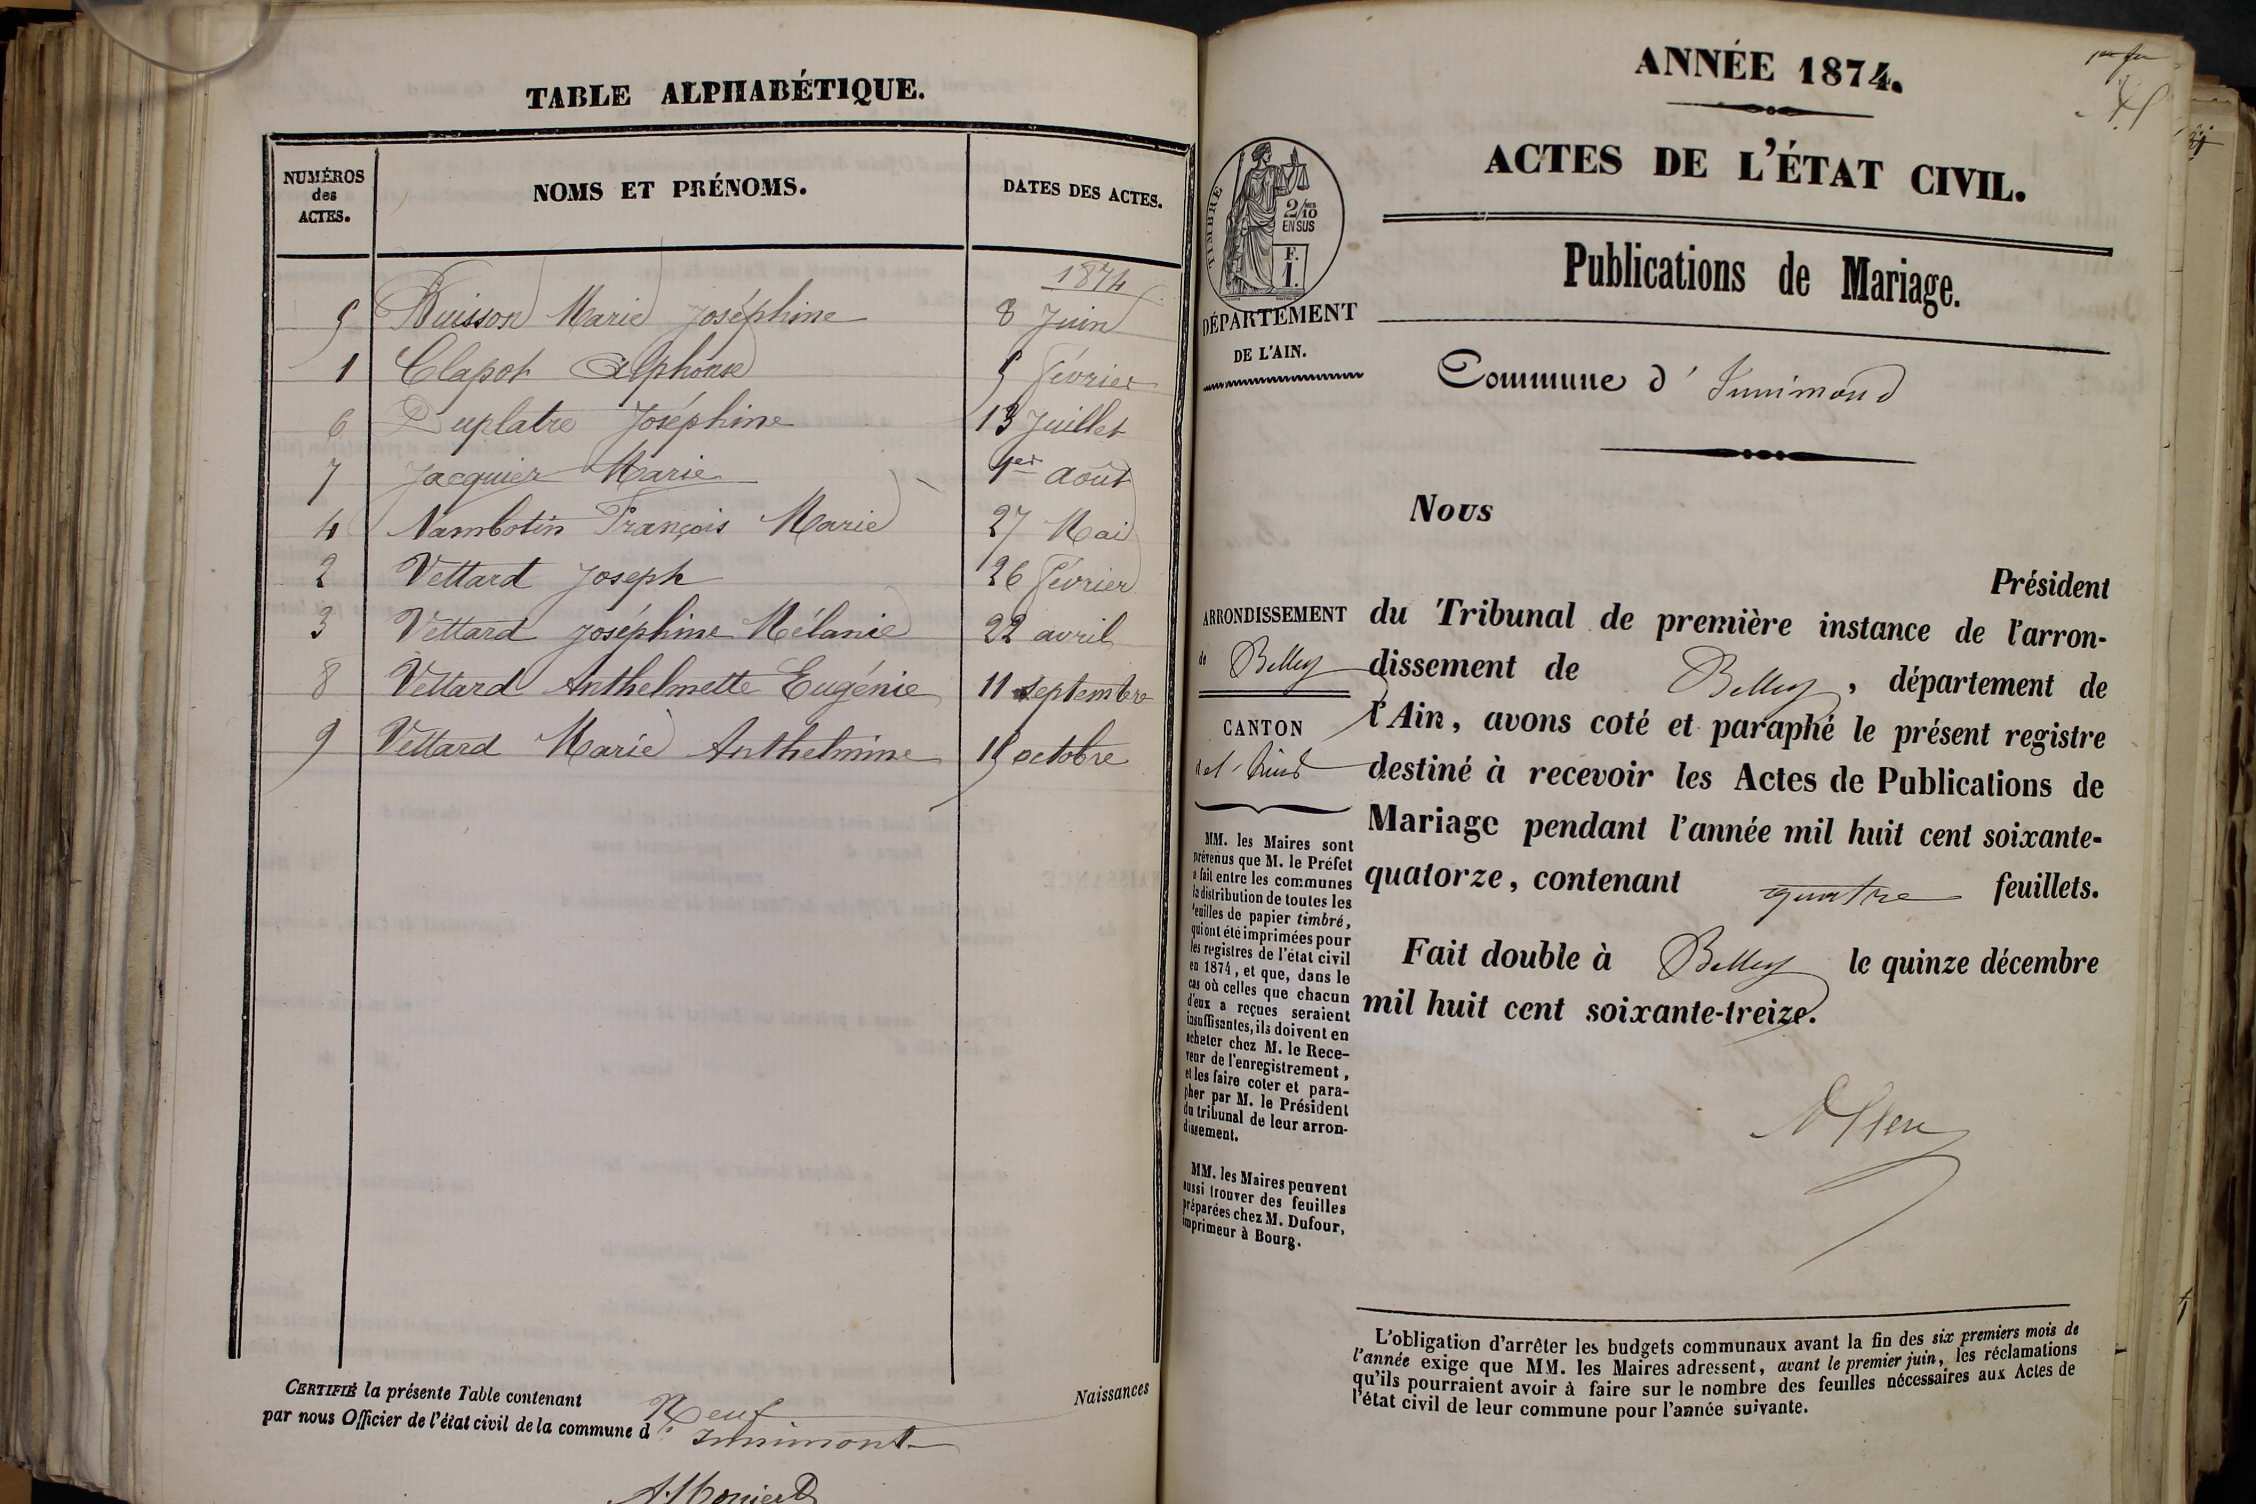 TABLE ALPHABÉTIQUE.
NUMÉROS des ACTES.
NOMS ET PRÉNOMS.
DATES DES ACTES.
1874
5 Buisson Marie Joséphine 8 Juin
1 Clapot Alphonse 5 Février
6 Duplatre Joséphine 13 Juillet
7 Jacquier Marie 1er août
4 Nambotin François Marie 27 Mai
2 Vettard Joseph 26 Février
3 Vettard Joséphine Mélanie 22 avril
8 Vettard Anthelmette Eugénie 11 septembre
9 Vettard Marie Anthelmine 15 octobre
CERTIFIÉ la présente Table contenant Neuf Naissances
par nous Officier de l'état civil de la commune d'Innimont
ANNÉE 1874.
ACTES DE L'ÉTAT CIVIL.
Publications de Mariage.
TIMBRE
2/10 EN SUS
F.
1.
DÉPARTEMENT
DE L'AIN.
Commune d'Innimond
ARRONDISSEMENT
de Belley
CANTON
MM. les Maires sont
prévenus que M. le Préfet
a fait entre les communes
la distribution de toutes les
feuilles de papier timbré,
qui ont été imprimées pour
les registres de l'état civil
en 1874, et que, dans le
cas où celles que chacun
d'eux a reçues seraient
insuffisantes, ils doivent en
acheter chez M. le Rece-
veur de l'enregistrement,
et les faire coter et para-
pher par M. le Président
du tribunal de leur arron-
dissement.
MM. les Maires peuvent
aussi trouver des feuilles
préparées chez M. Dufour,
imprimeur à Bourg.
Nous
Président
du Tribunal de première instance de l'arron-
dissement de Belley, département de
l'Ain, avons coté et paraphé le présent registre
destiné à recevoir les Actes de Publications de
Mariage pendant l'année mil huit cent soixante-
quatorze, contenant quatre feuillets.
Fait double à Belley le quinze décembre
mil huit cent soixante-treize.
L'obligation d'arrêter les budgets communaux avant la fin des six premiers mois de
l'année exige que MM. les Maires adressent, avant le premier juin, les réclamations
qu'ils pourraient avoir à faire sur le nombre des feuilles nécessaires aux Actes de
l'état civil de leur commune pour l'année suivante.